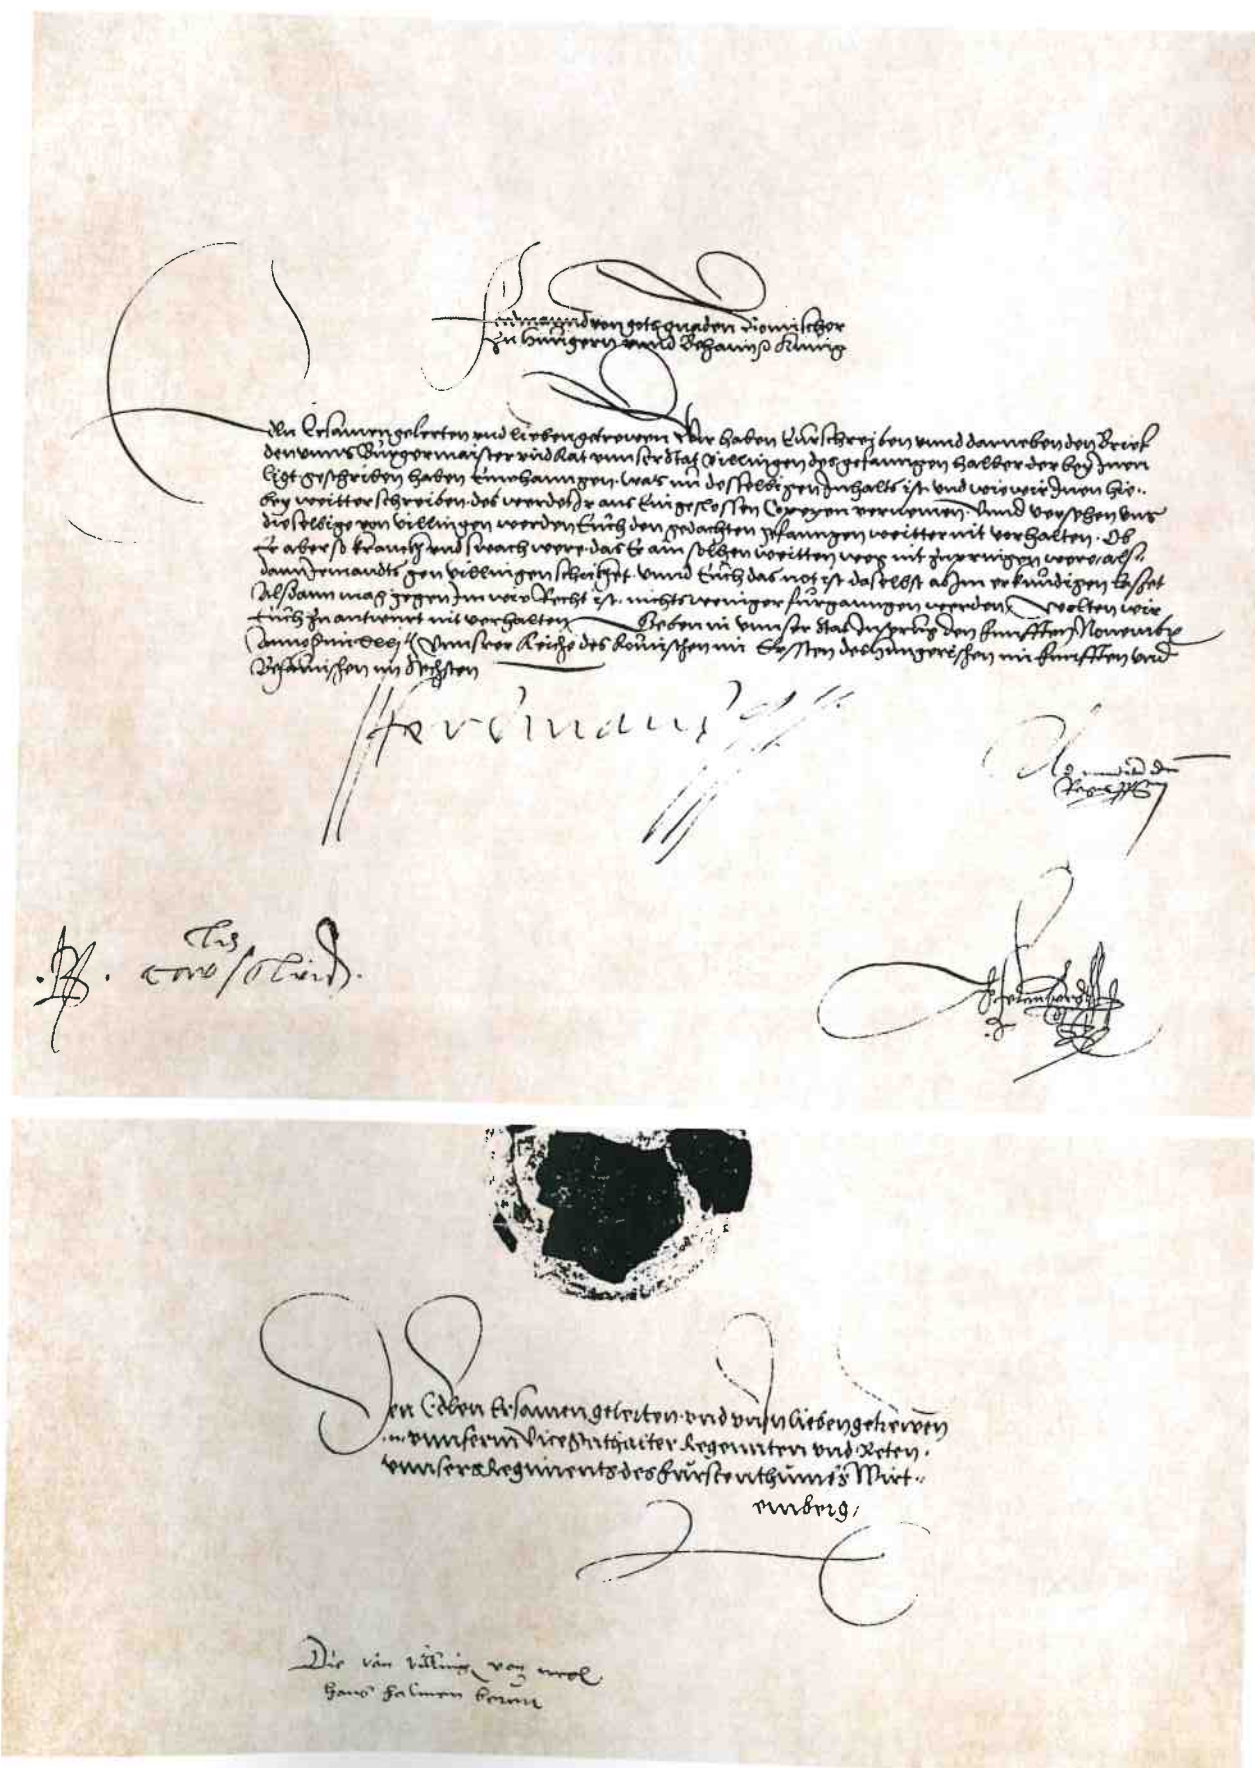 Ferdinannd von gots gnaden Romischer
zu Hungern vnnd Behaim &c Kunig
Edln Ersamen gelerten vnd lieben getrewen Wir haben Eur schreiben vnnd darneben den Brief
den vnns Burgermaister vnd Rat vnnser Stat Villingen des gefanngen halber der bey Inen
ligt geschriben haben Emphanngen. was nu desselbigen Inhalts ist. vnd wie wir Inen hie=
bey weitter schreiben. des werdet Ir aus Eingeslossen Copeyen vernemen. Vnnd versehen vns
dieselbige von Villingen werden Euch den gedachten gefanngen weitter nit vorhalten. Ob
Er aber so kranckh vnd swach were. das Er ain solhen weitten weg nit zupringen were, als=
dann Jemandts gen Villingen schickhet. vnnd Euch das not ist daselbst ab Im erkundigen lasset
Alsdann mag gegen Im wie Recht ist. nichtsweniger furganngen werden. Wolten wir
Euch zu antwurt nit verhalten Geben in vnnser Stat Insprug den funfften Novembr
Anno &c im xxxj Vnnserer Reiche des Römischen im Ersten des Hungerischen im funfften vnd
Behamischen im Sechsten
Ferdinand
Ad mandatu dni
Regis
Den Edlen Ersamen gelerten. vnd vnsn lieben getrewen
.n. vnnserm Vicestathalter Regennten vnd Reten.
vnnsers Regiments des Furstenthumbs Wirt=
emberg,
Die von Villing von wegl
hans